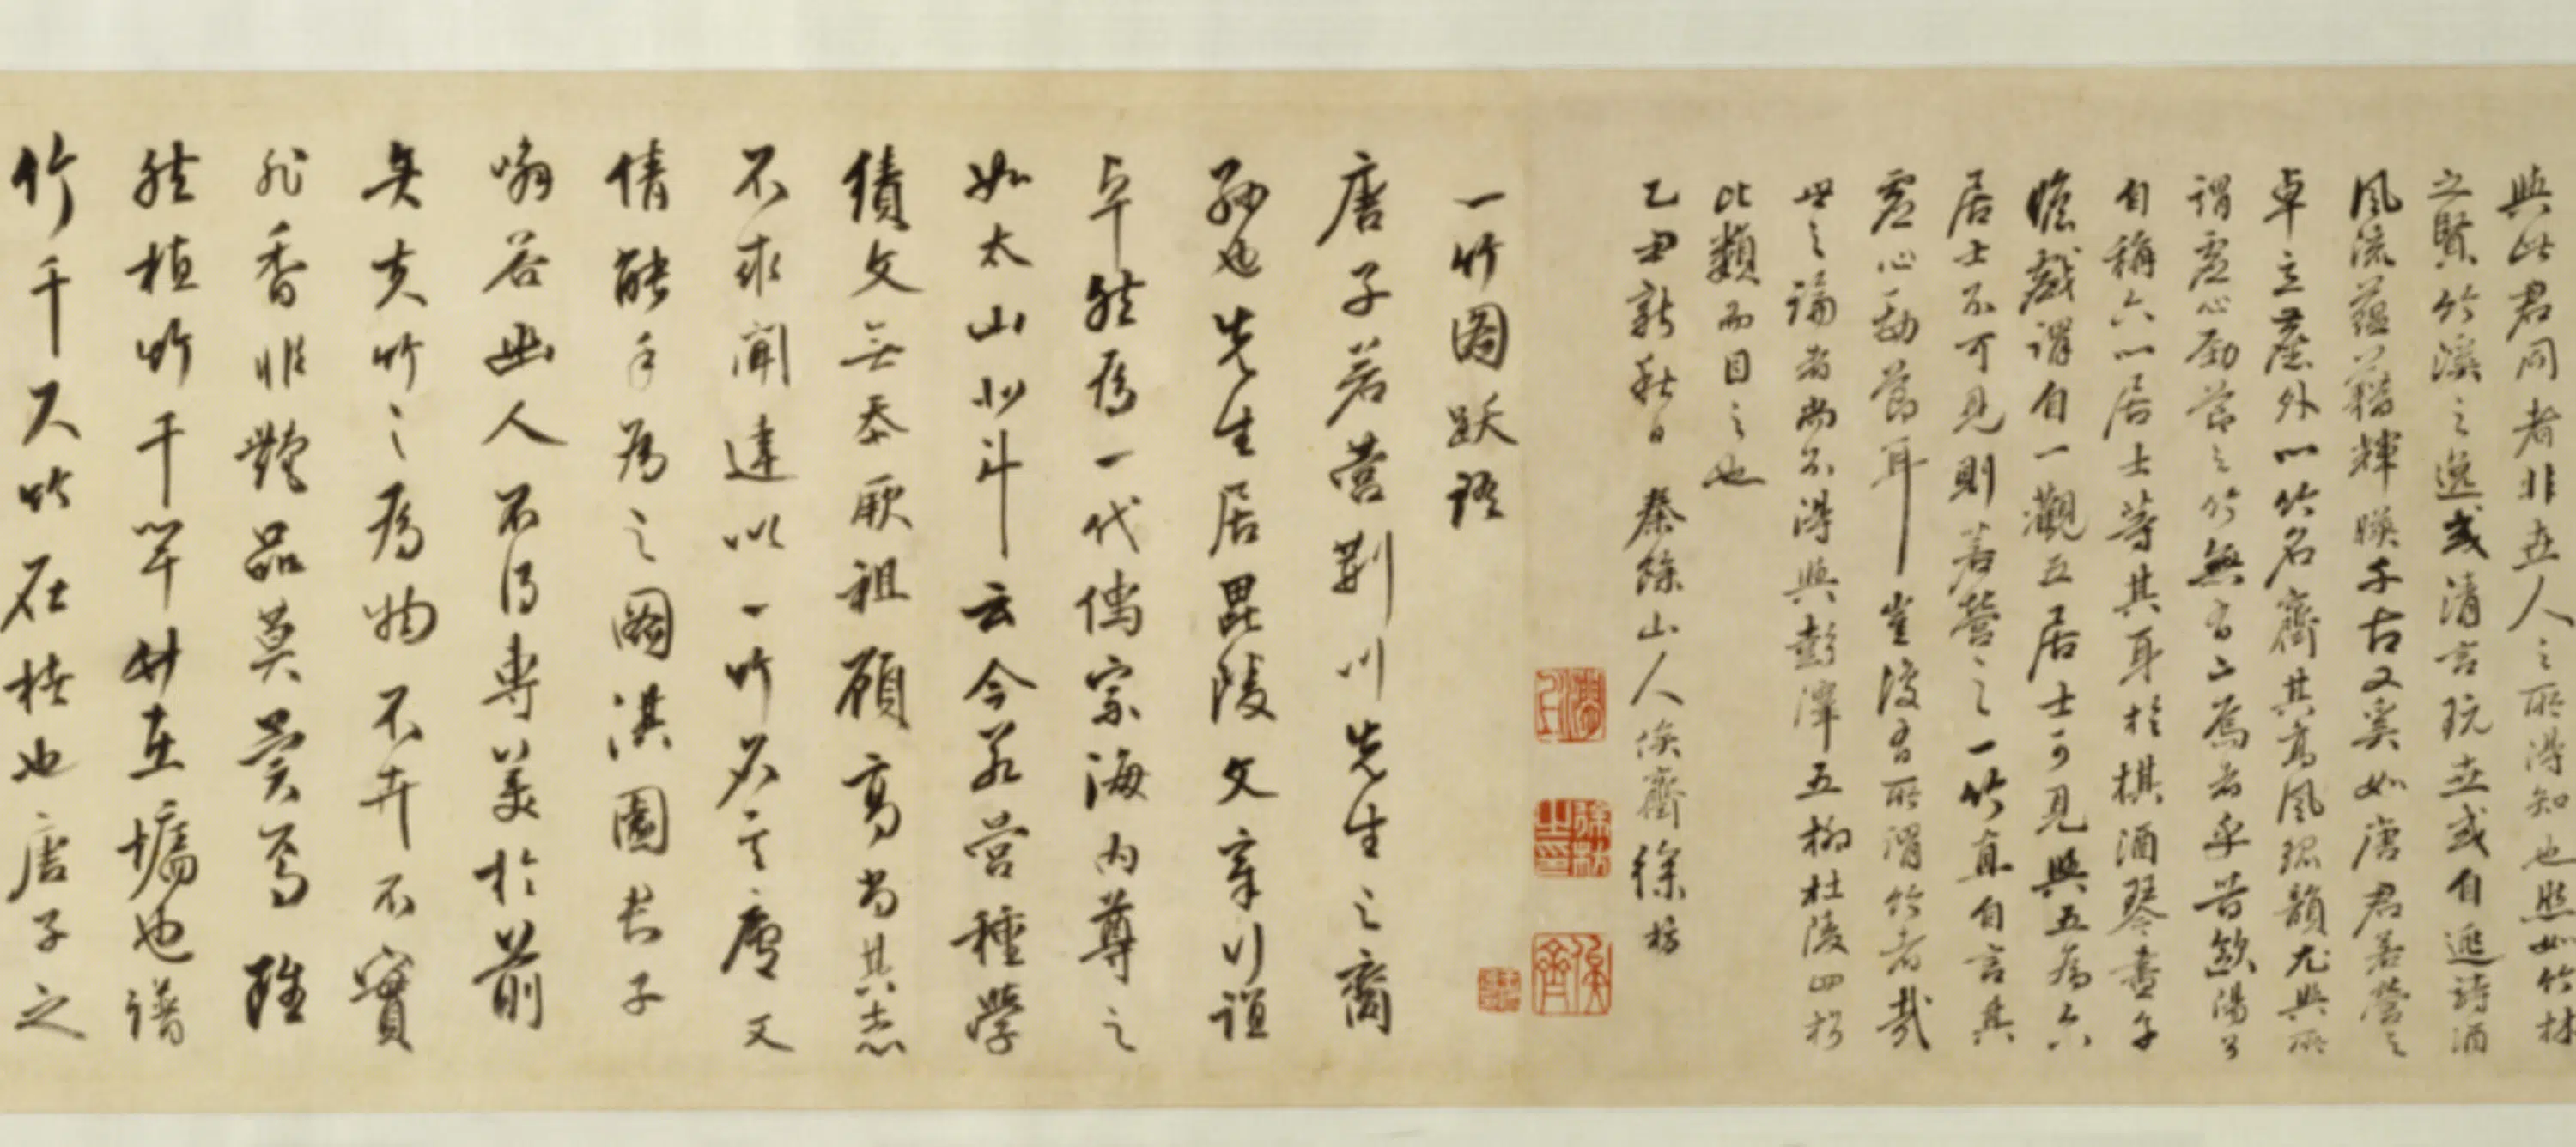 與此君同者非世人之所得知也然如竹林
之賢竹溪之逸或清言玩世或自逃詩酒
風流蘊藉輝暎千古又奚如唐君若營之
卓立塵外以竹名齋其高風孤韻尤與所
謂虛心勁節之竹無有二焉者乎昔歐陽子
自稱六一居士等其身於棋酒琴書子
瞻戲謂自一觀五居士可見與五為六
居士不可見則若營之一竹真自言其
虛心勁節耳豈復有所謂竹者哉
世之論者尚不得與彭澤五柳杜陵四松
此類而目之也
乙丑新秋日 秦餘山人俟齋徐枋
一竹圖跋語
唐子若營荊川先生之裔
孫也先生居毘陵文章行誼
卓然為一代儒宗海內尊之
如太山北斗云今若營種學
績文無忝厥祖顧高尚其志
不求聞達以一竹名其廬文
倩能手為之圖淇園長子
嶰谷幽人不得專美於前
矣夫竹之為物不卉不實
非香非艷品莫貴焉雖
然植竹千竿妙在墉也譜
竹千尺竹在楮也唐子之